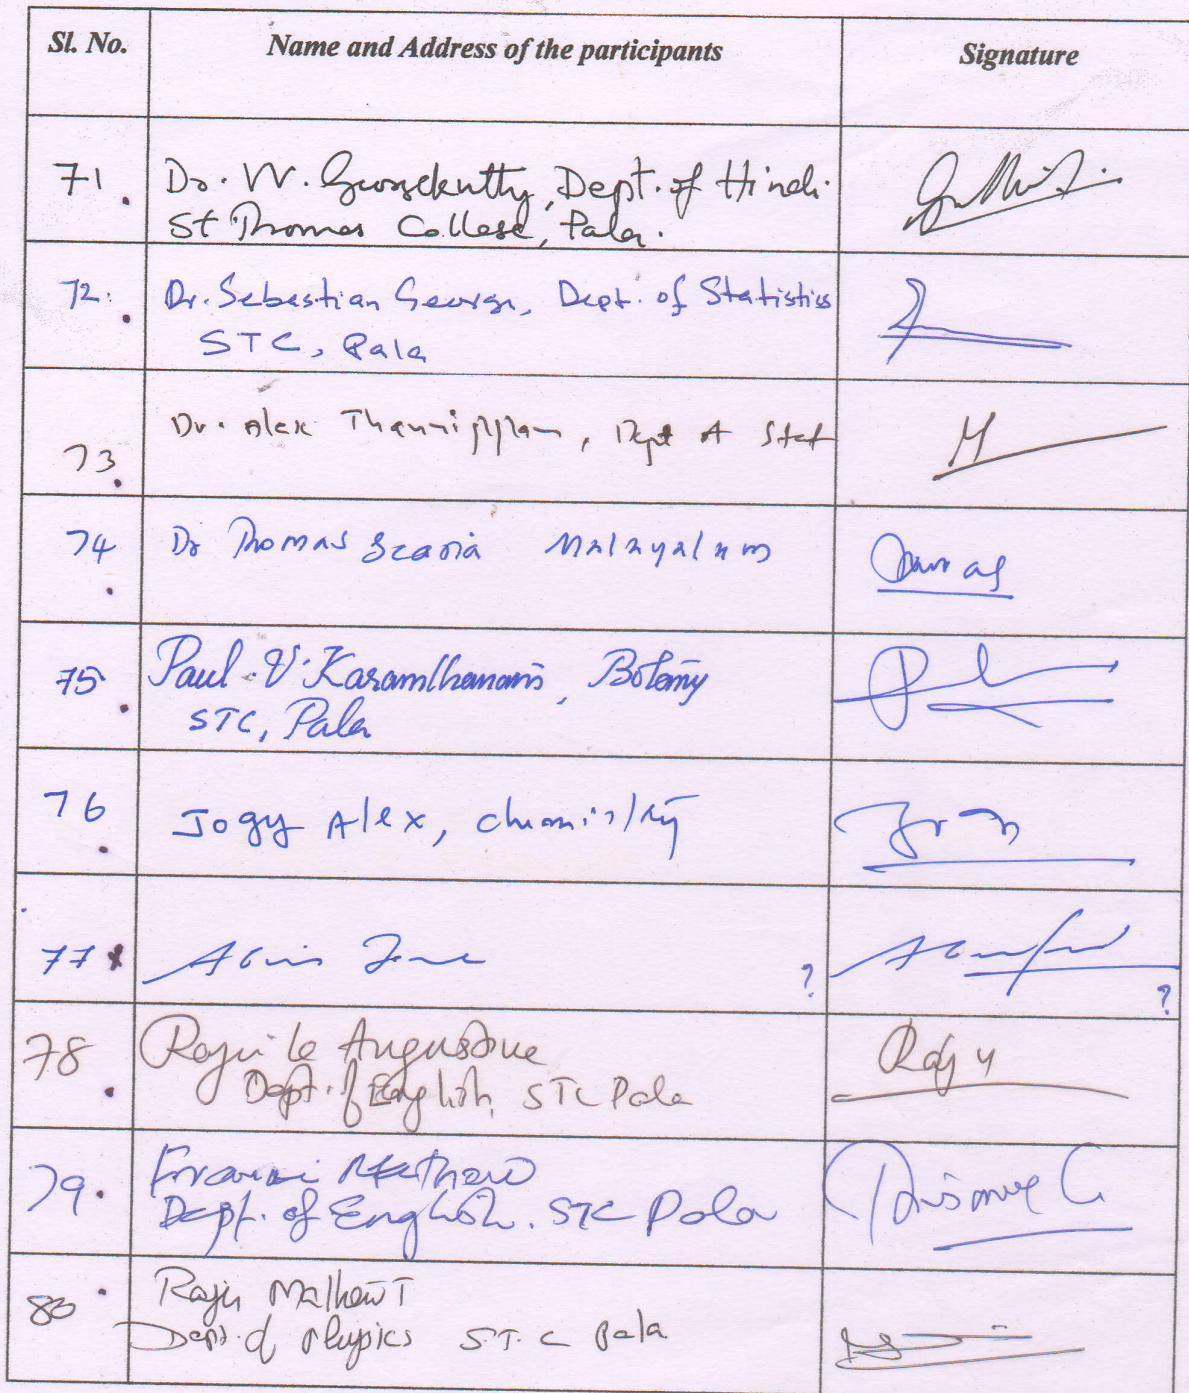 Sl. No. Name and Address of the participants Signature
71. Dr. V.V. Georgekutty, Dept. of Hindi
St Thomas College, Pala.
72. Dr. Sebastian George, Dept. of Statistics
STC, Pala
Dr. Alex Thannippara, Dept of Stat
73.
74. Dr Thomas Scaria Malayalam Thomas
75. Paul V. Karamthanam, Botany
STC, Pala
76. Jogy Alex, chemistry
77 ? ?
78. Raju Augustine Raju
Dept. of English, STC Pala
79. Mathew
Dept. of English. STC Pala
80. Raju Mathew T
Dept. of Physics S.T.C Pala